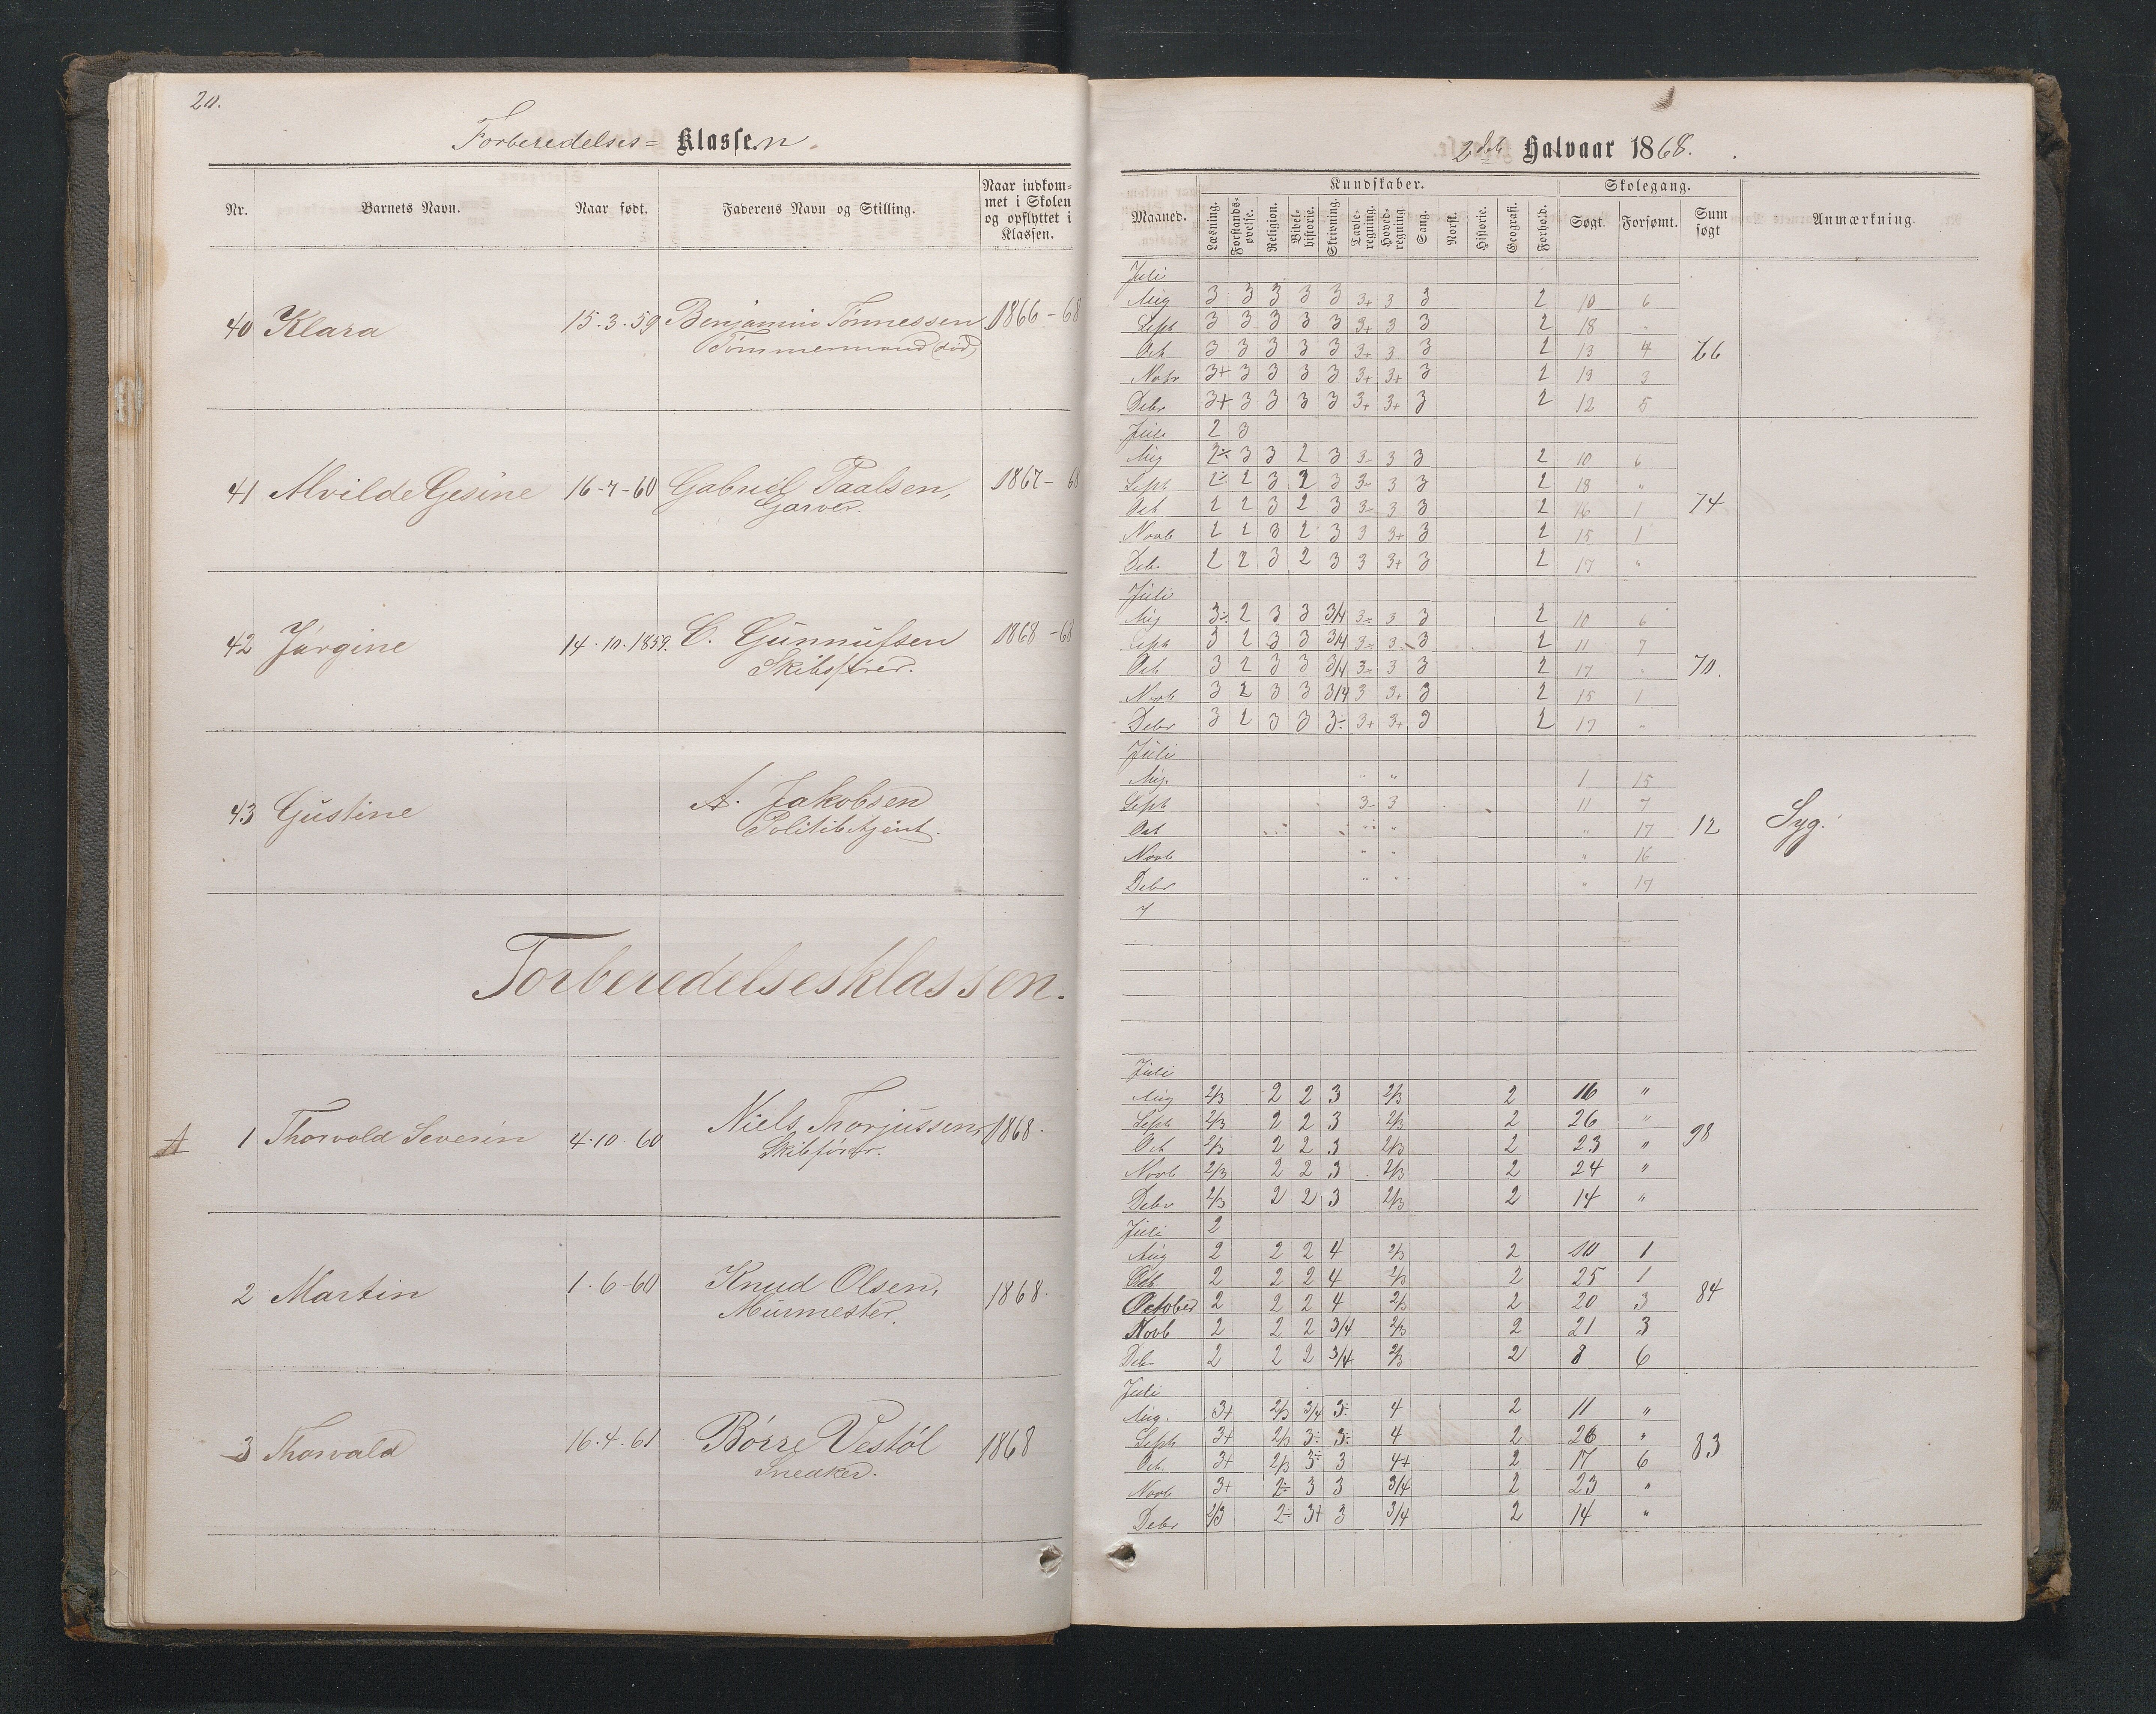 20.
Forberedelses= Klassen.
Nr. Barnets Navn. Naar født. Faderens Navn og Stilling. Naar indkom=
met i Skolen
og opflyttet i
Klassen.
40 Klara 15.3.59 Benjamin Tønnessen 1866-68
Tømmermand (død)
41 Alvilde Gesine 16-7-60 Gabriel Paalsen, 1867-68
Garver.
42 Jørgine 14.10.1859. C. Gunnufsen 1868-68
Skibsfører.
43 Gustine A. Jakobsen
Politibetjent.
Forberedelsesklassen.
A 1 Thorvald Severin 4.10.60 Niels Thorjussen 1868.
Skibsfører.
2 Martin 1.6-60 Knud Olsen, 1868.
Murmester.
3 Thorvald 16.4.61 Børre Vestøl 1868
Snedker.
2det Halvaar 1868.
Maaned. Kundskaber. Skolegang. Sum søgt Anmærkning.
Læsning. Forstands-øvelse. Religion. Bibel-historie. Skrivning. Tavle-regning. Hoved-regning. Sang. Norsk. Historie. Geografi. Forhold. Søgt. Forsømt.
Juli
Aug 3 3 3 3 3 3+ 3 3 2 10 6
Sept 3 3 3 3 3 3+ 3 3 2 18 "
Oct 3 3 3 3 3 3+ 3 3 2 13 4 66
Novbr 3+ 3 3 3 3 3+ 3+ 3 2 13 3
Debr 3+ 3 3 3 3 3+ 3+ 3 2 12 5
Juli 2 3
Aug 2÷ 3 3 2 3 3- 3 3 2 10 6
Sept 2÷ 2 3 2 3 3- 3 3 2 18 "
Oct 2 2 3 2 3 3- 3 3 2 16 1 74
Novb 2 2 3 2 3 3 3+ 3 2 15 1
Deb. 2 2 3 2 3 3 3+ 3 2 17 "
Juli
Aug 3÷ 2 3 3 3/4 3- 3 3 2 10 6
Sept 3 2 3 3 3/4 3- 3 3 2 11 7
Oct 3 2 3 3 3/4 3- 3 3 2 17 " 70.
Novb 3 2 3 3 3/4 3 3+ 3 2 15 1
Debr 3 2 3 3 3÷ 3+ 3+ 3 2 17 "
Juli
Aug. " " 1 15
Sept 3- 3 11 7
Oct " " " 17 12 Syg.
Novb " " " 16
Debr " " " 17
7
Juli
Aug 2/3 2 2 3 2/3 2 16 "
Sept 2/3 2 2 3 2/3 2 26 "
Oct 2/3 2 2 3 2/3 2 23 " 98
Novb 2/3 2 2 3 2/3 2 24 "
Debr 2/3 2 2 3 2/3 2 14 "
Juli 2
Aug 2 2 2 4 2/3 2 10 1
2 2 2 4 2/3 2 25 1
October 2 2 2 4 2/3 2 20 3 84
Novb 2 2 2 3/4 2/3 2 21 3
Debr 2 2 2 3/4 2/3 2 8 6
Juli
Aug. 3+ 2/3 3/4 3÷ 4 2 11 "
Sept 3+ 2/3 3÷ 3÷ 4 2 26 "
Oct. 3+ 2/3 3÷ 3 4+ 2 17 6 83
Novb 3+ 2÷ 3 3 3/4 2 23 "
Debr 2/3 2÷ 3+ 3 3/4 2 14 "